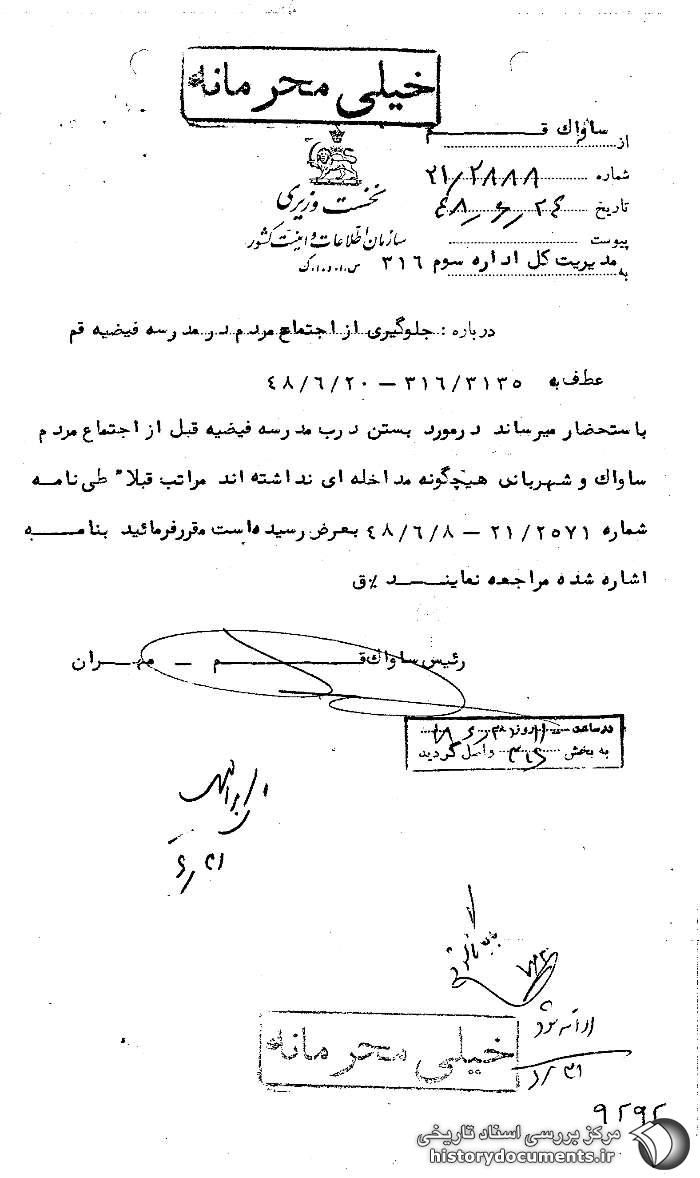 خیلی محرمانه
از ساواک قــــم
شماره ۲۱/۲۸۸۸
تاریخ ۴۸/۶/۲۴
پیوست
نخست وزیری
سازمان اطلاعات و امنیت کشور
س.ا.و.ا.ک
به مدیریت کل اداره سوم ۳۱۶
درباره : جلوگیری از اجتماع مردم در مدرسه فیضیه قم
عطف به ۳۱۶/۳۱۳۵ – ۴۸/۶/۲۰
باستحضار میرساند درمورد بستن درب مدرسه فیضیه قبل از اجتماع مردم
ساواک و شهربانی هیچگونه مداخله ای نداشته اند مراتب قبلا" طی نامه
شماره ۲۱/۲۵۷۱ – ۴۸/۶/۸ بعرض رسیده است مقررفرمائید بنامـــه
اشاره شده مراجعه نماینـــد ٪ق
رئیس ساواک قــــم – مهـران
در ساعت روز
به بخش ۳۱۶ واصل گردید
۶/۳۱
ارائه شود
۳۱
خیلی محرمانه
۹۲۹۲
مرکز بررسی اسناد تاریخی
historydocuments.ir